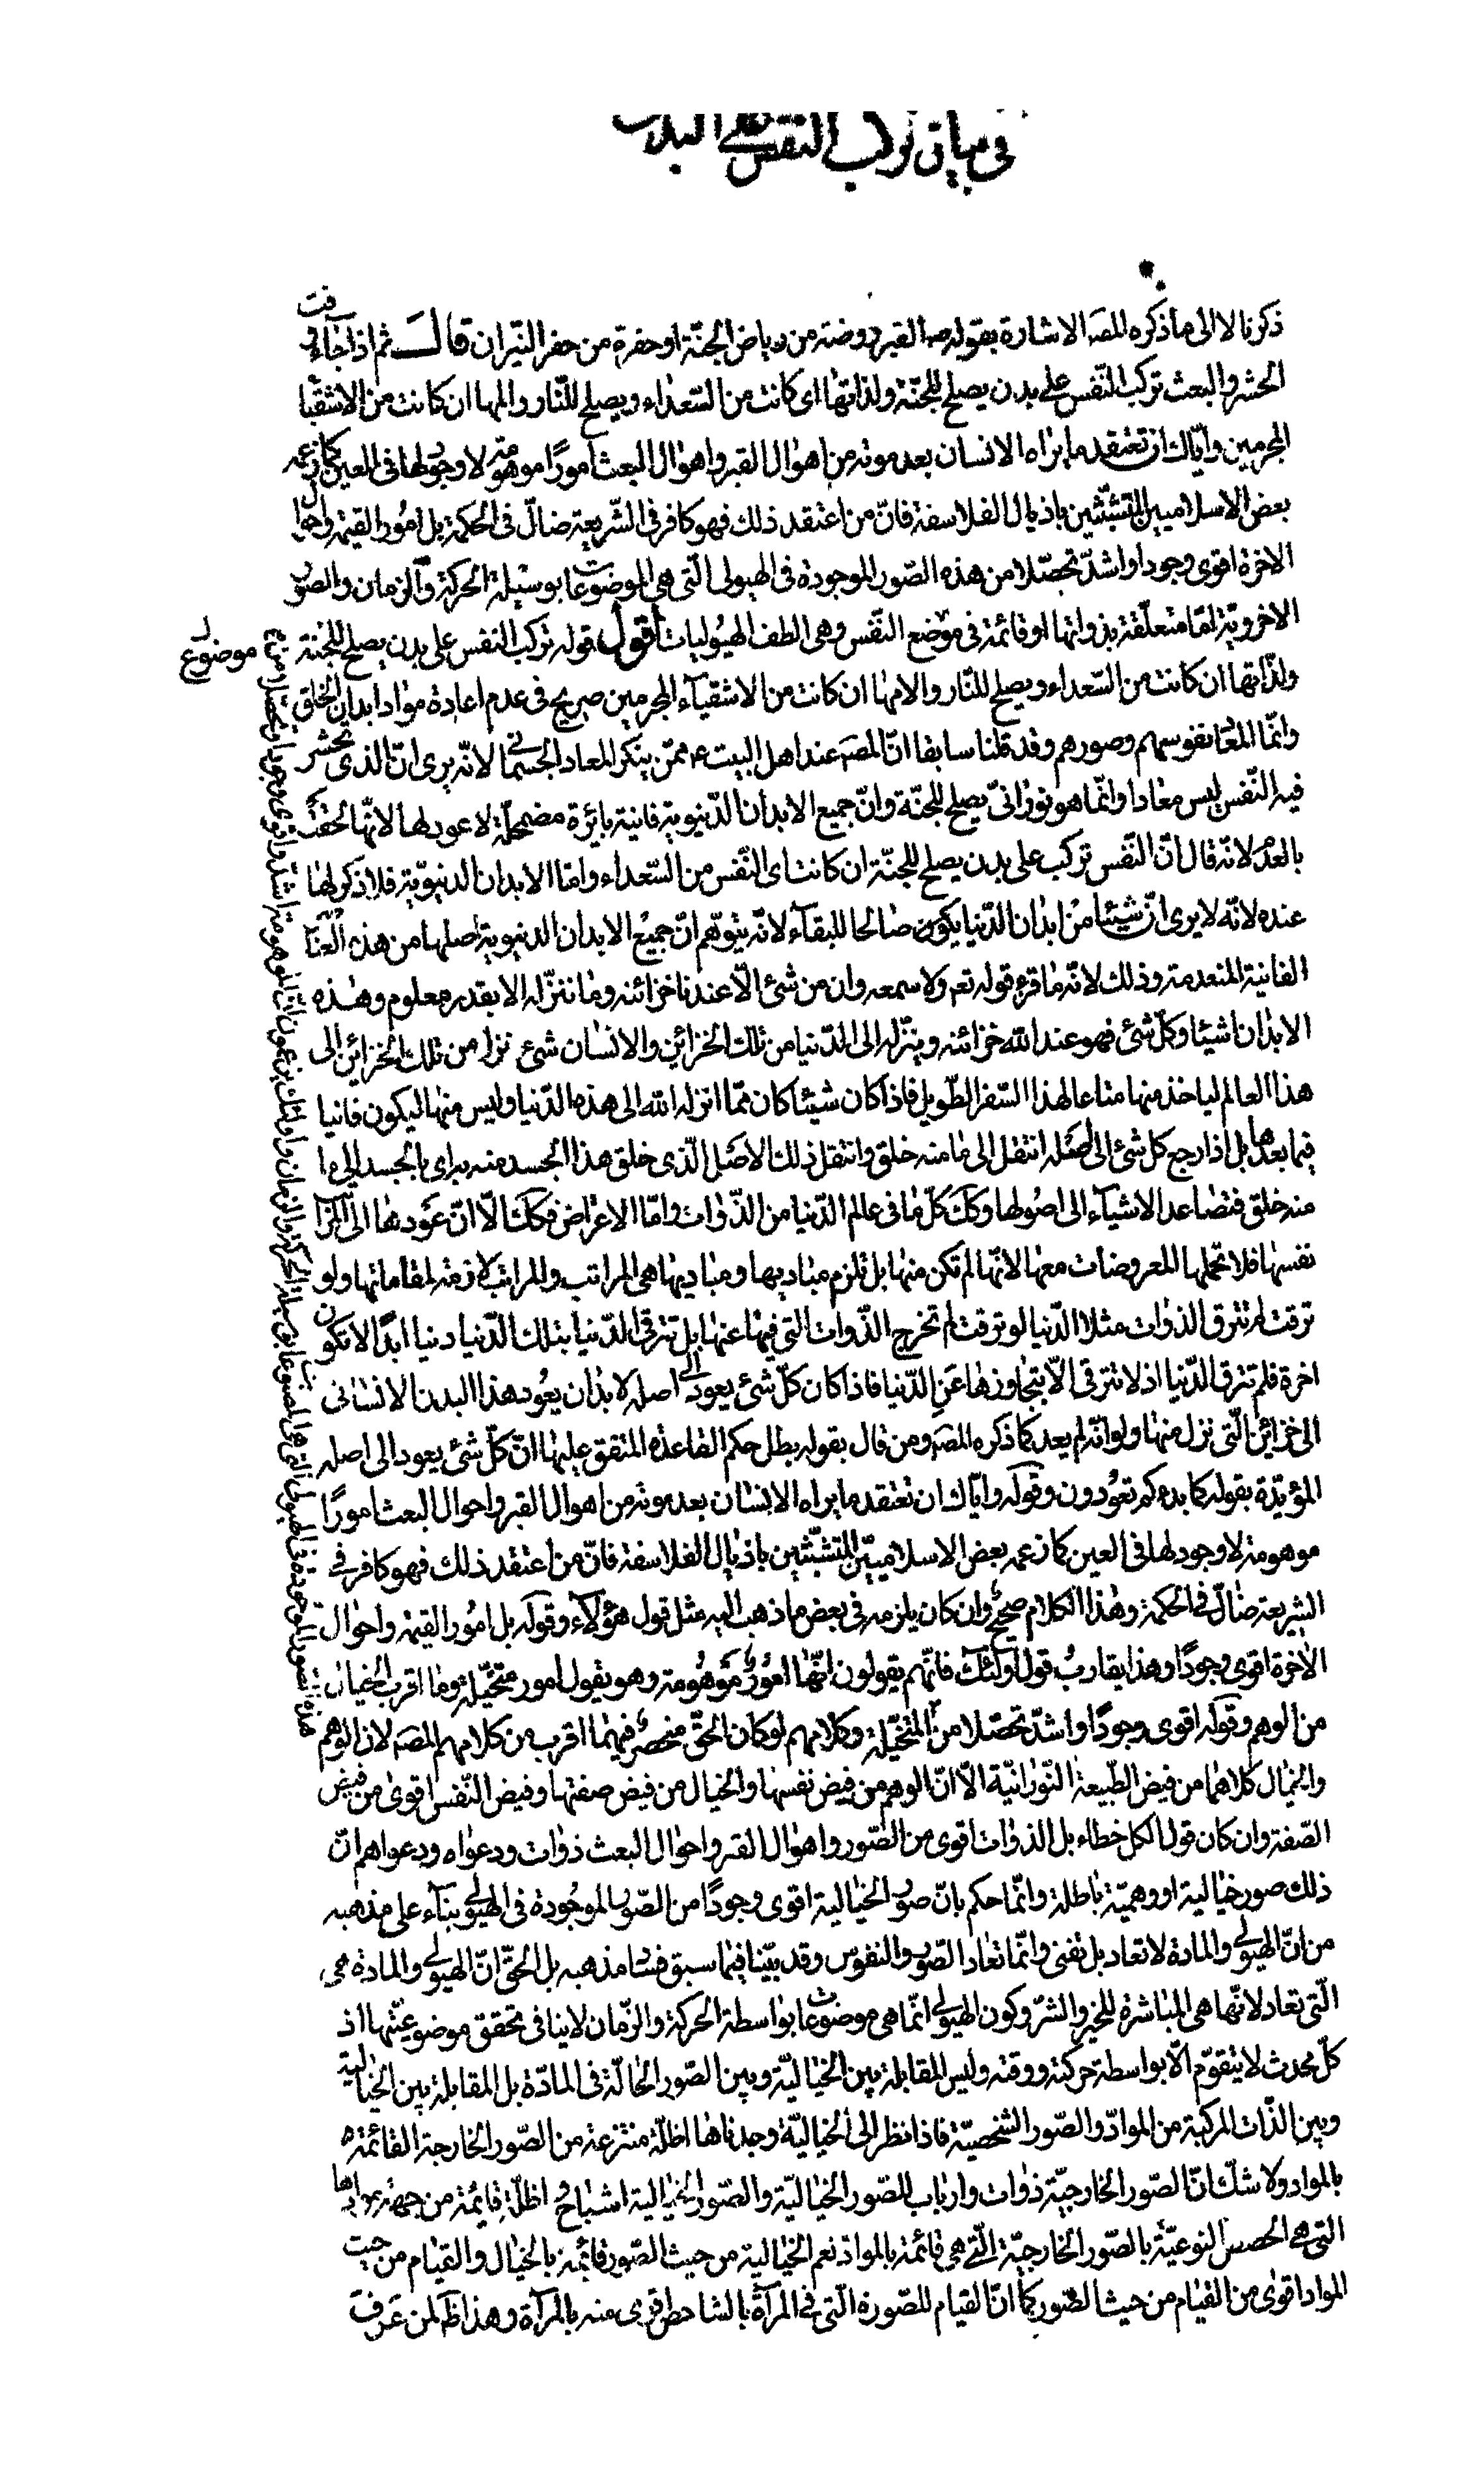 في بيان تركب النفس على البدن
ذكرنا لا الى ما ذكره المصَ الاشارة بقوله ص القبر روضة من رياض الجنّة او حفرة من حفر النّيران قال ثم اذا جاء وقت
الحشر والبعث تركب النّفس على بدن يصلح للجنّة ولذاتها اى كانت من السّعداء ويصلح للنّار والمها ان كانت من الاشقيا
المجرمين وايّاك ان تعتقد ما يراه الانسان بعد موته من اهوال القبر واهوال البعث امورًا موهومة لا وجود لها فى العين كما زعمه
بعض الاسلاميين المتشبّثين باذيال الفلاسفة فانّ من اعتقد ذلك فهو كافر فى الشّريعة ضالّ فى الحكمة بل امُور القيمة واحوال
الاخرة اقوى وجودا واشدّ تحصّلا من هذه الصّور الموجودة فى الهيولى الّتى هى الموضوعات بوسيلة الحركة والزمان والصور
الاخروية امّا متعلّقة بذواتها او قائمة فى موضع النّفس وهى الطف الهيوليات اقول قوله تركب النفس على بدن يصلح للجنة
موضوع
ولذّاتها ان كانت من السّعداء ويصلح للنّار والامها ان كانت من الاشقيآء المجرمين صريح فى عدم اعادة مواد ابدان الخلق
وانّما المعاد نفوسهم وصورهم وقد قلنا سابقا انّ المصَ عند اهل البيت ع ممّن ينكر المعاد الجسمانى لانّه يرى انّ الذى تحشر
فيه النّفس ليس معادا وانّما هو نورانىّ يصلح للجنّة وانّ جميع الابدان الدّنيوية فانية بائرة مضمحلّة لا عود لها لانّها لحقت
بالعدم لانّه قال انّ النّفس تركب على بدن يصلح للجنّة ان كانت اى النّفس من السّعداء وامّا الابدان الدنيويّة فلا ذكر لها
عنده لانّه لا يرى انّ شيئا من ابدان الدّنيا يكون صالحا للبقآء لانّه يتوهّم انّ جميع الابدان الدنيوية اصلها من هذه العنا
الفانية المنعدمة وذلك لانّه ما قرء قوله تعم ولا سمعه وان من شئ الّا عندنا خزائنه وما ننزّله الا بقدر معلوم وهذه
الابدان اشيئا وكلّ شئ فهو عند الله خزائنه وينزّله الى الدّنيا من تلك الخزائن والانسان شئ نزل من تلك الخزائن الى
هذا العالم لياخذ منها متاعا لهذا السّفر الطّويل فاذا كان شيئا كان ممّا انزله الله الى هذه الدّنيا وليس منها ليكون فانيا
فيما بعدها بل اذا رجع كل شئ الى اصله انتقل الى ما منه خلق وانتقل ذلك الاصل الّذى خلق هذا الجسد منه به اى بالجسد الى ما
منه خلق فتصاعد الاشيآء الى اصُولها وكك كلّ ما فى عالم الدّنيا من الذّوات وامّا الاعراض فكك الّا انّ عودها الى
نفسها فلا تحملها المعروضات معها لانّها لم تكن منها بل تلزم مباديها ومباديها هى المراتب والمراتب لازمة لمقاماتها ولو
ترقت لم تترق الذوات مثلا الدّنيا لو ترقت لم تخرج الذّوات التى فيها عنها بل تترقى الدّنيا بتلك الدّنيا دنيا ابدًا لا تكون
اخرة فلم تترق الدّنيا اذ لا تترقى الّا بتجاوزها عن الدّنيا فاذا كان كلّ شئ يعود الى اصله لا بدّ ان يعُود هذا البدن الانسانى
الى خزائن الّتى نزل منها ولو انّه لم يعد كما ذكره المصَ ومن قال بقوله بطل حكم القاعدة المتفق عليها انّ كلّ شئ يعود الى اصله
المؤيّدة بقوله كما بدءكم تعوُدون وقوله وايّاك ان تعتقد ما يراه الانسان بعد موته من اهوال القبر واحوال البعث امورًا
موهومة لا وجود لها فى العين كما زعمه بعض الاسلاميين المتشبّثين باذيال الفلاسفة فانّ من اعتقد ذلك فهو كافر فى
الشريعة ضالّ فى الحكمة وهذا الكلام صحيح وان كان يلزمه فى بعض ما ذهب اليه مثل قول هؤلآء وقوله بل امُور القيمة واحوال
الاخرة اقوى وجودًا وهذا يقارب قول اولئك فانّهم يقولون انّها امُورٌ موهُومة وهو يقول امور متخيّلة وما اقرب الخيال
من الوهم وقوله اقوى وجودًا واشدّ تحصّلا من المتخيّلة وكلامهم لو كان الحقّ منحصر فيهما اقرب من كلامهم المصَ لان الوهم
والخيال كلاهما من فيض الطّبيعة النّورانيّة الّا انّ الوهم من فيض نفسها والخيال من فيض صفتها وفيض النّفس اقوى من فيض
الصّفة وان كان قول الكل خطاء بل الذوات اقوى من الصّور واهوال القبر واحوال البعث ذوات ودعواه ودعواهم انّ
ذلك صور خيالية او وهميّة باطلة وانّما حكم بانّ صور الخيالية اقوى وجودًا من الصّور الموجُودة فى الهيولى بنآء على مذهبه
من انّ الهيولى والمادة لا تعاد بل تفنى وانّما تعاد الصّور والنفوس وقد بيّنا فيما سبق فساد مذهبه بل الحقّ انّ الهيولى والمادة هى
الّتى تعاد لانّها هى المباشرة للخير والشرّ وكون الهيولى انّما هى موضوعات بواسطة الحركة والزّمان لا ينافى تحقق موضوعيّتها اذ
كلّ محدث لا يتقوّم الّا بواسطة حركته ووقته وليس المقابلة بين الخياليّة وبين الصّور الحالّة فى المادّة بل المقابلة بين الخيالية
وبين الذّات المركبة من الموادّ والصّور الشخصيّة فاذا نظر الى الخياليّة وجدناها اظلّة منتزعة من الصّور الخارجة القائمة
بالمواد ولا شك انّ الصّور الخارجيّة ذوات وارباب للصّور الخياليّة والصّور الخيالية اشباحٌ اظلّة قائمة من جهة موادّها
التى هى الحصص النوعيّة بالصّور الخارجيّة الّتى هى قائمة بالموادّ نعم الخيالية من حيث الصّور قائمة بالخيال والقيام من حيث
المواد اقوى من القيام من حيث الصّور كما انّ القيام للصّورة الّتى فى المرآة بالشاخص اقوى منه بالمرآة وهذا ظَ لمن عَرف
هذه الصور الموجودة فى الهيولى الّتى هى الموضوعات بوسيلة الحركة والزمان